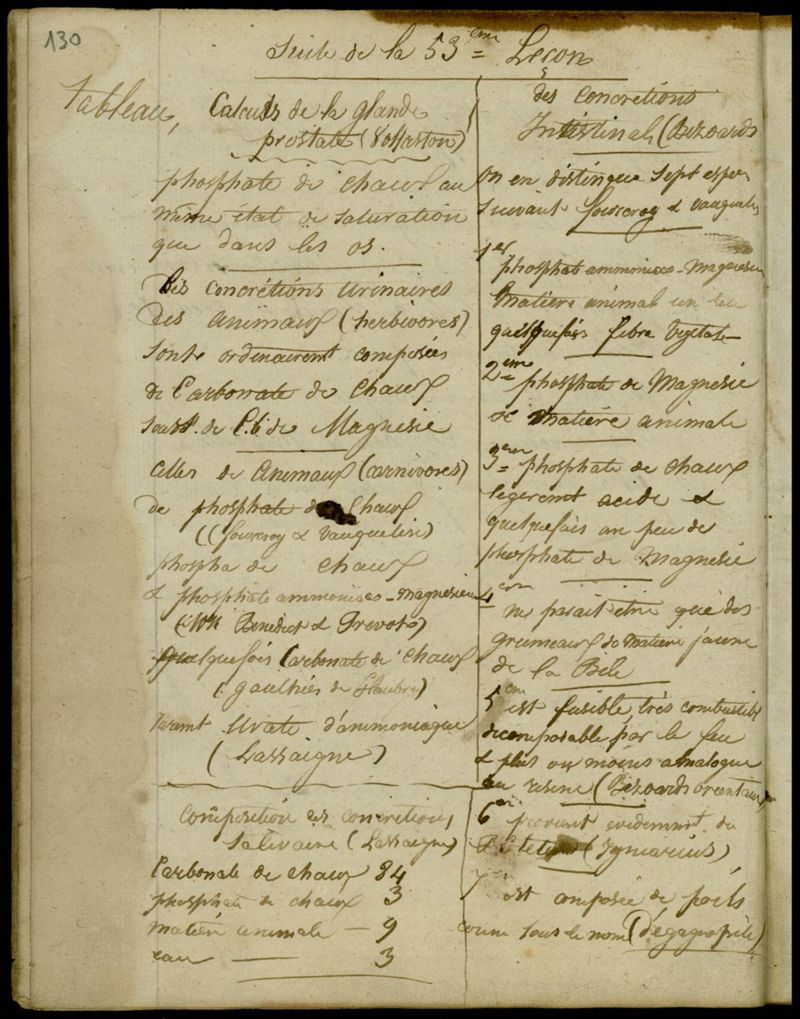 130
Suite de la 53ème Leçon
Tableau,
Calculs de la glande
prostate (Vollaston)
phosphate de chaux au
même état de saturation
que dans les os.
Les concrétions urinaires
des animaux (herbivores)
sont ordinairemt composées
de Carbonate de chaux
de Magnésie
Celles de animaux (carnivores)
de phosphate de chaux
((fourcroy & Vauquelin)
phospha de chaux
& phosphate ammoniaco-magnésien
(Mr Benedict & Prevots)
quelquefois Carbonate de chaux
(gaulthiés de Claubry)
raremt Urate d'ammoniaque
(Lassaigne)
Composition des concrétions
salivaire (Lassaigne)
Carbonate de chaux 84
phosphate de chaux 3
matière animale — 9
eau — 3
des Concretions
Intestinals (Bezoards
on en distingue sept espe
suivant fourcroy & vauquelin
1er
phosphat ammoniaco-magnesien
matière animal un peu
quelquefois fibre vegetale
2em phosphate de Magnesie
& matière animale
3em phosphate de chaux
legeremt acide &
quelquefois un peu de
phosphate de Magnesie
4em
ne parait etre que des
grumeaux de matiere jaune
de la Bile
5em est fusible, très combustible
decomposable par le feu
& plus ou moins analogue
au resine (Bezoards orientaux
6em provient evidemmt du
(Igniarius)
7em
est composée de poils
connu sous le nom (dégagropile)